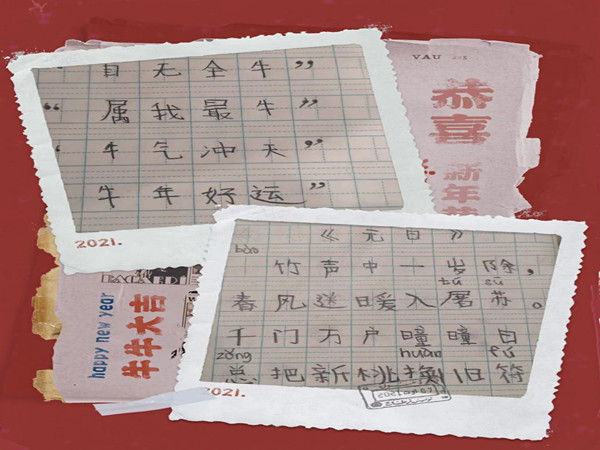 “目无全牛”
“属我最牛”
“牛气冲天”
“牛年好运”
2021.
VAU
恭
喜
新年
《元日》
bào
竹声中一岁除，
tú sū
春风送暖入屠苏。
千门万户曈曈日
zǒng huàn fú
总把新桃换旧符
2021.
happy new year
牛牛大吉